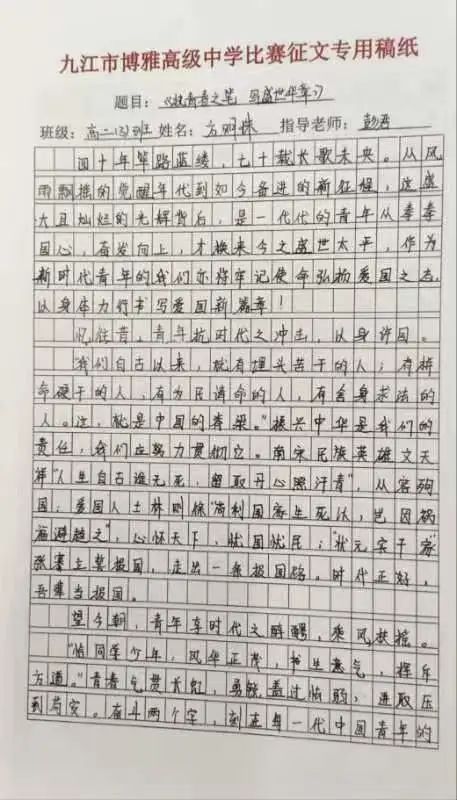 九江市博雅高级中学比赛征文专用稿纸
题目:《执青春之笔 写盛世华章》
班级:高二(3)班 姓名:方明姝 指导老师:彭君
四十年筚路蓝缕,七十载长歌未央。从风
雨飘摇的觉醒年代到如今奋进的新征程,这盛
大且灿烂的光辉背后,是一代代的青年从拳拳
国心,奋发向上,才换来今之盛世太平,作为
新时代青年的我们亦将牢记使命弘扬爱国之志,
以身体力行书写爱国新篇章!
忆往昔,青年抗时代之冲击,以身许国。
“我们自古以来,就有埋头苦干的人,有拼
命硬干的人,有为民请命的人,有舍身求法的
人。这,就是中国的脊梁。”振兴中华是我们的
责任,我们应努力贯彻它。南宋民族英雄文天
祥“人生自古谁无死,留取丹心照汗青”,从容殉
国;爱国人士林则徐“苟利国家生死以,岂因祸
福避趋之”,心怀天下,忧国忧民;“状元实干家”
张謇立誓报国,走出一条报国路。时代正好,
吾辈当报国。
望今朝,青年享时代之醉醑,乘风扶摇。
“恰同学少年,风华正茂,书生意气,挥斥
方遒。”青春气贯长虹,勇锐盖过怯弱,进取压
到苟安。奋斗两个字,刻在每一代中国青年的